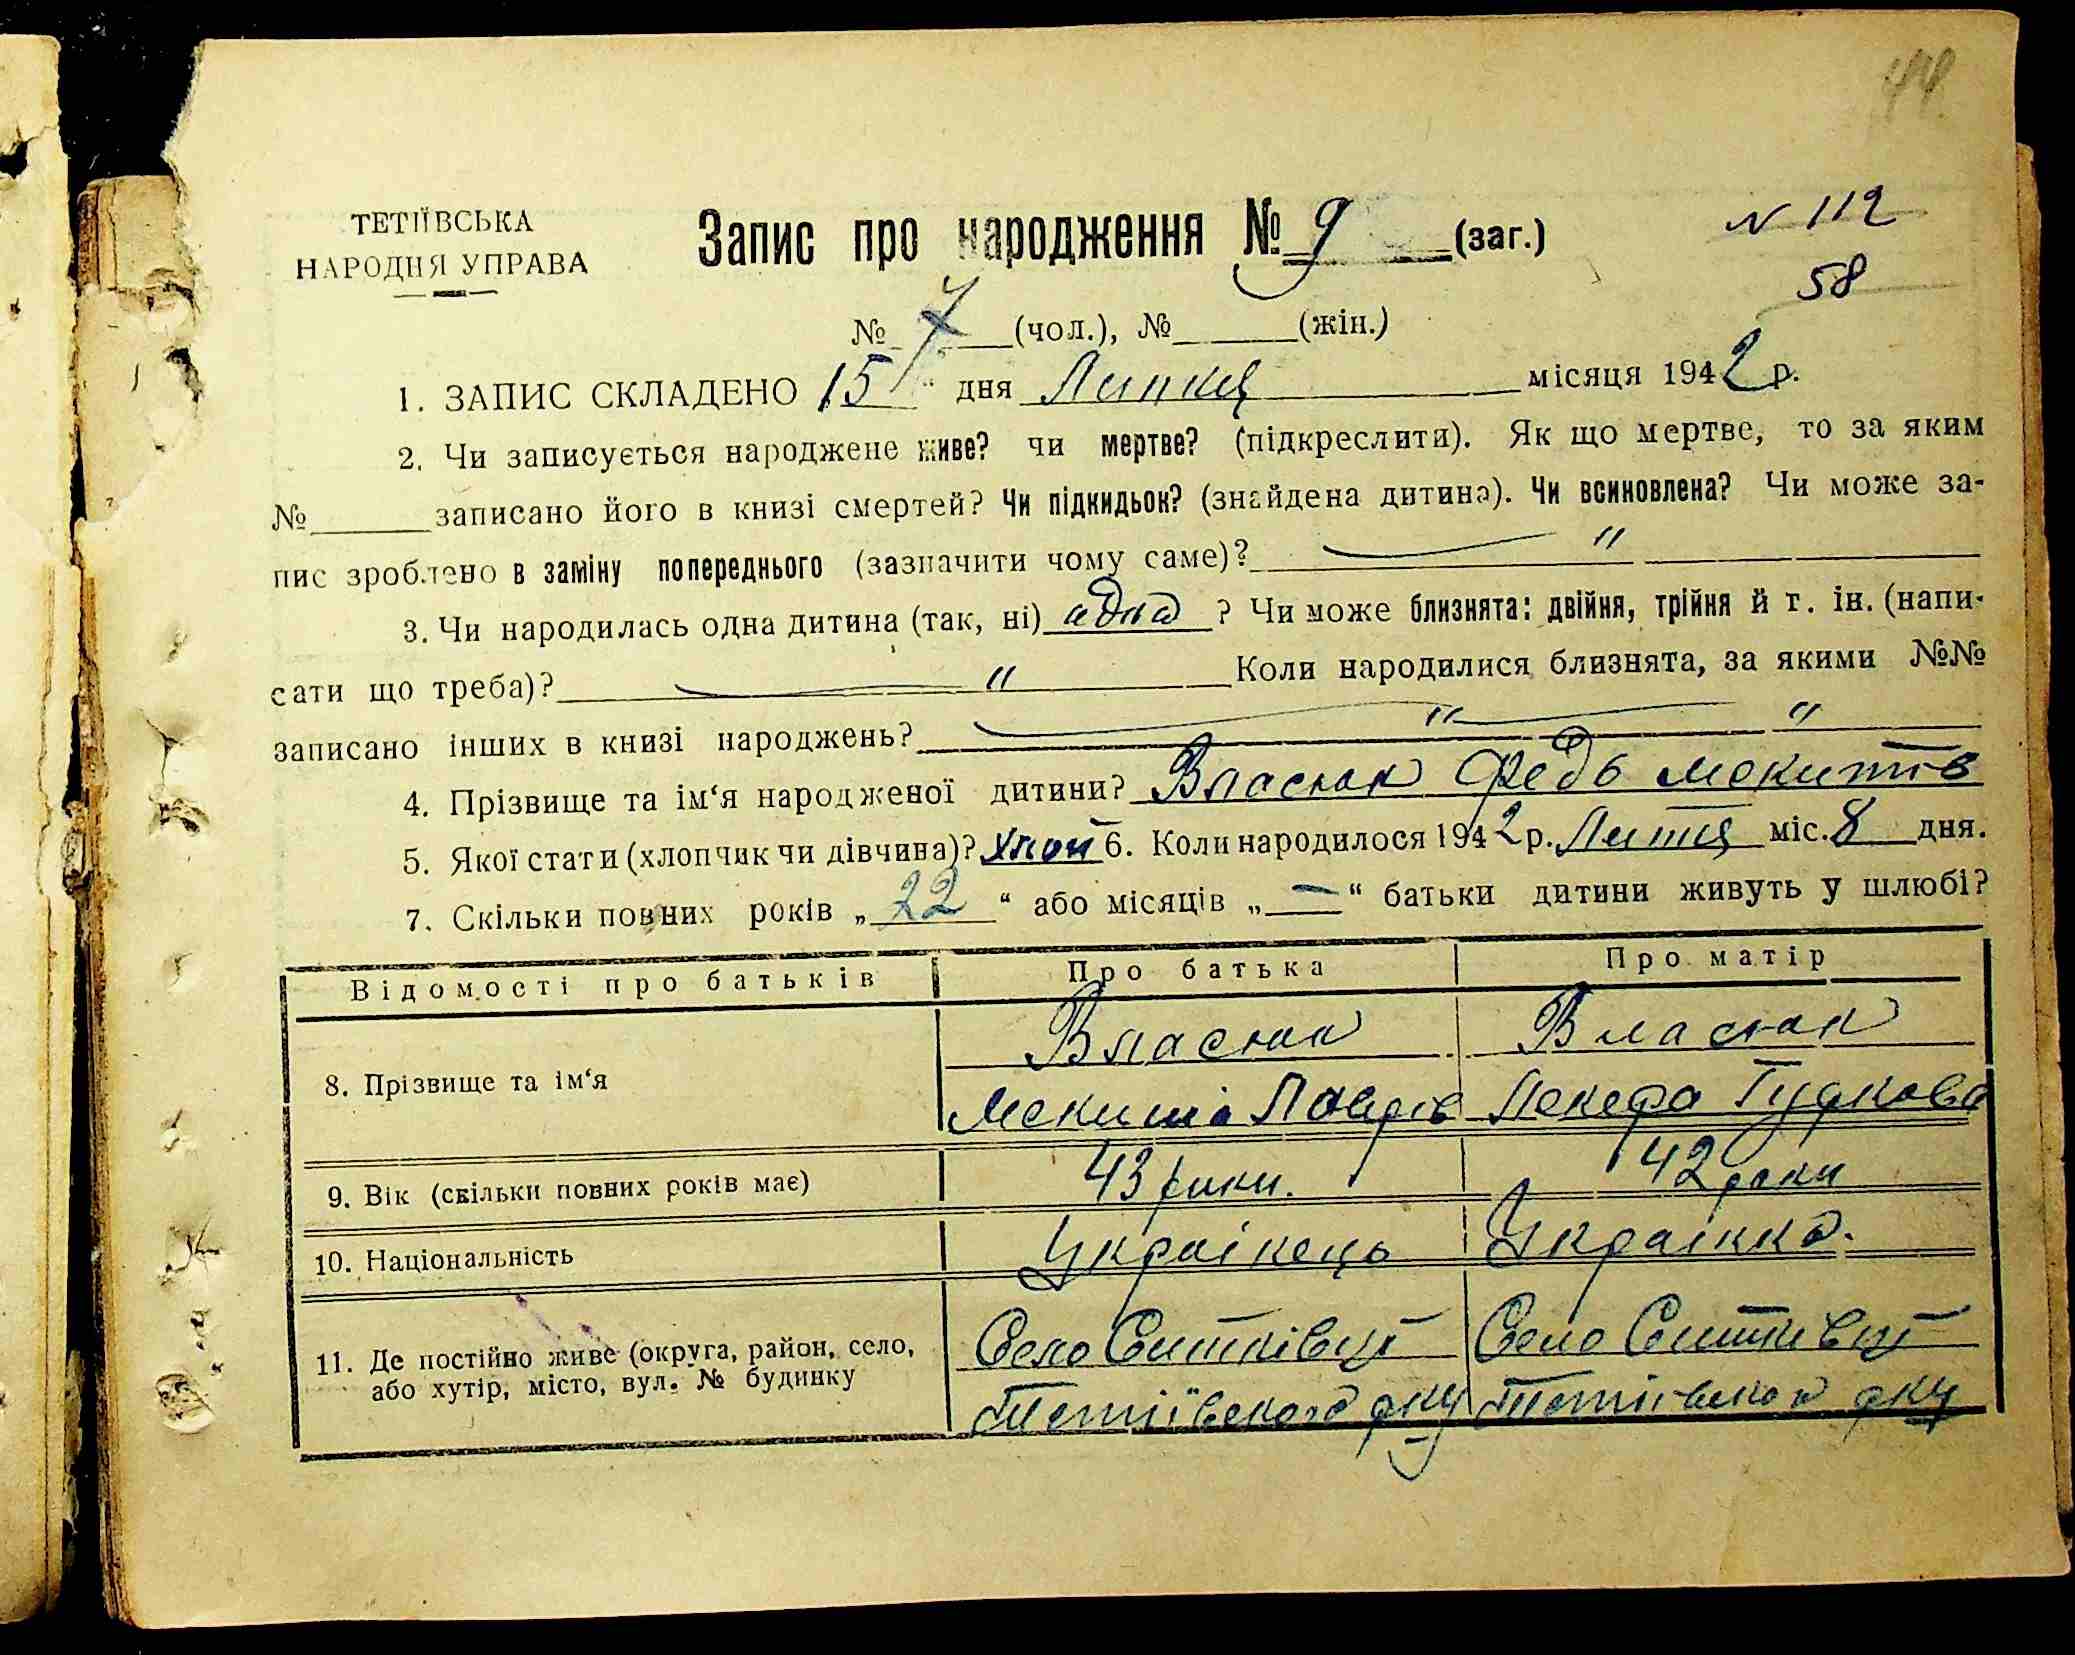 44
ТЕТІЇВСЬКА
НАРОДНЯ УПРАВА
Запис про народження № 9 (заг.)
N 112
58
№ 7 (чол.), № (жін.)
1. ЗАПИС СКЛАДЕНО 15 " дня Липня місяця 1942 р.
2. Чи записується народжене живе? чи мертве? (підкреслити). Як що мертве, то за яким
№ записано його в книзі смертей? Чи підкидьок? (знайдена дитина). Чи всиновлена? Чи може за-
пис зроблено в заміну попереднього (зазначити чому саме)? — "
3. Чи народилась одна дитина (так, ні) одна ? Чи може близнята: двійня, трійня й т. ін. (напи-
сати що треба)? — " Коли народилися близнята, за якими №№
записано інших в книзі народжень? — " — "
4. Прізвище та ім‘я народженої дитини? Власюк Федь Мекитів
5. Якої стати (хлопчик чи дівчина)? хлоп 6. Коли народилося 1942 р. міс. 8 дня.
7. Скільки повних років „ 22 “ або місяців „ — “ батьки дитини живуть у шлюбі?
Відомості про батьків Про батька Про матір
Власюк Власюк
8. Прізвище та ім‘я
Мекита Лаврів
9. Вік (скільки повних років має) 43 роки. 42 роки
10. Національність Українець Українка.
11. Де постійно живе (округа, район, село, Село Ситківці Село Ситківці
або хутір, місто, вул. № будинку Тетіївского рну Тетіївского рну